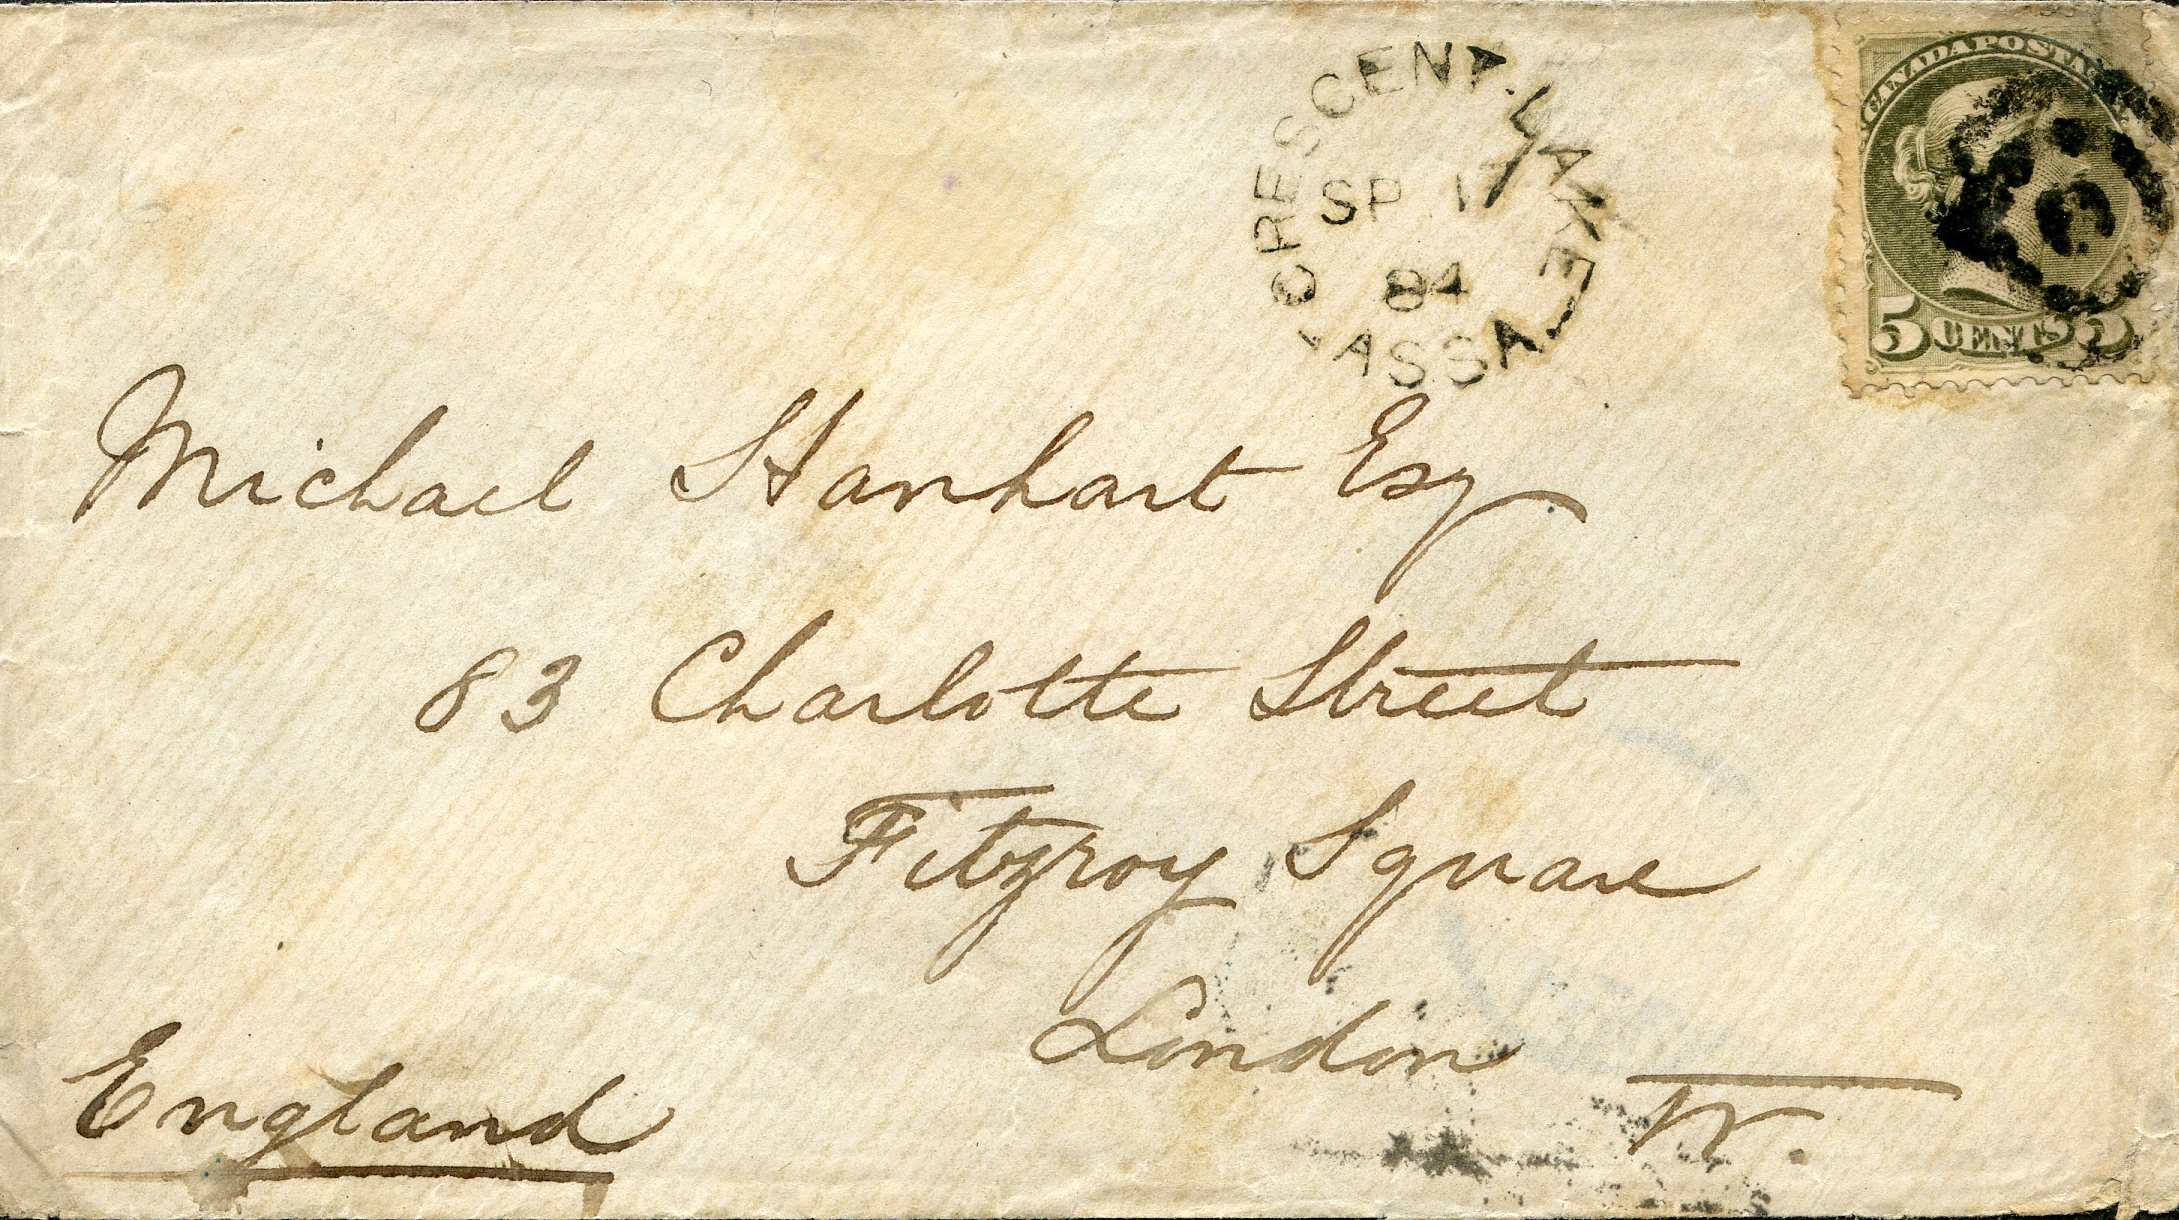 CRESCENT. LAKE
SP 17
84
ASSA
CANADA POSTAGE
3
5 CENTS 5
Michael Hanhart Esq
83 Charlotte Street
Fitzroy Square
London
W.
England